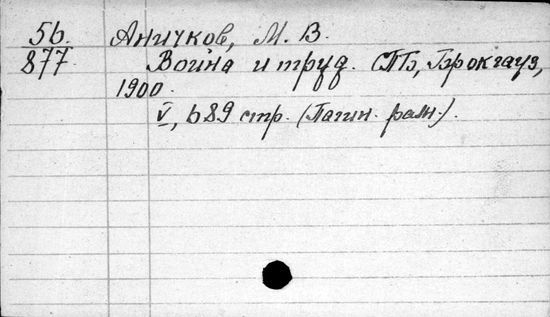 56. Аничков, М. В.
877 Война и труд. СПБ, Брокгауз,
1900.
V, 689 стр. (Пагин. разн.).